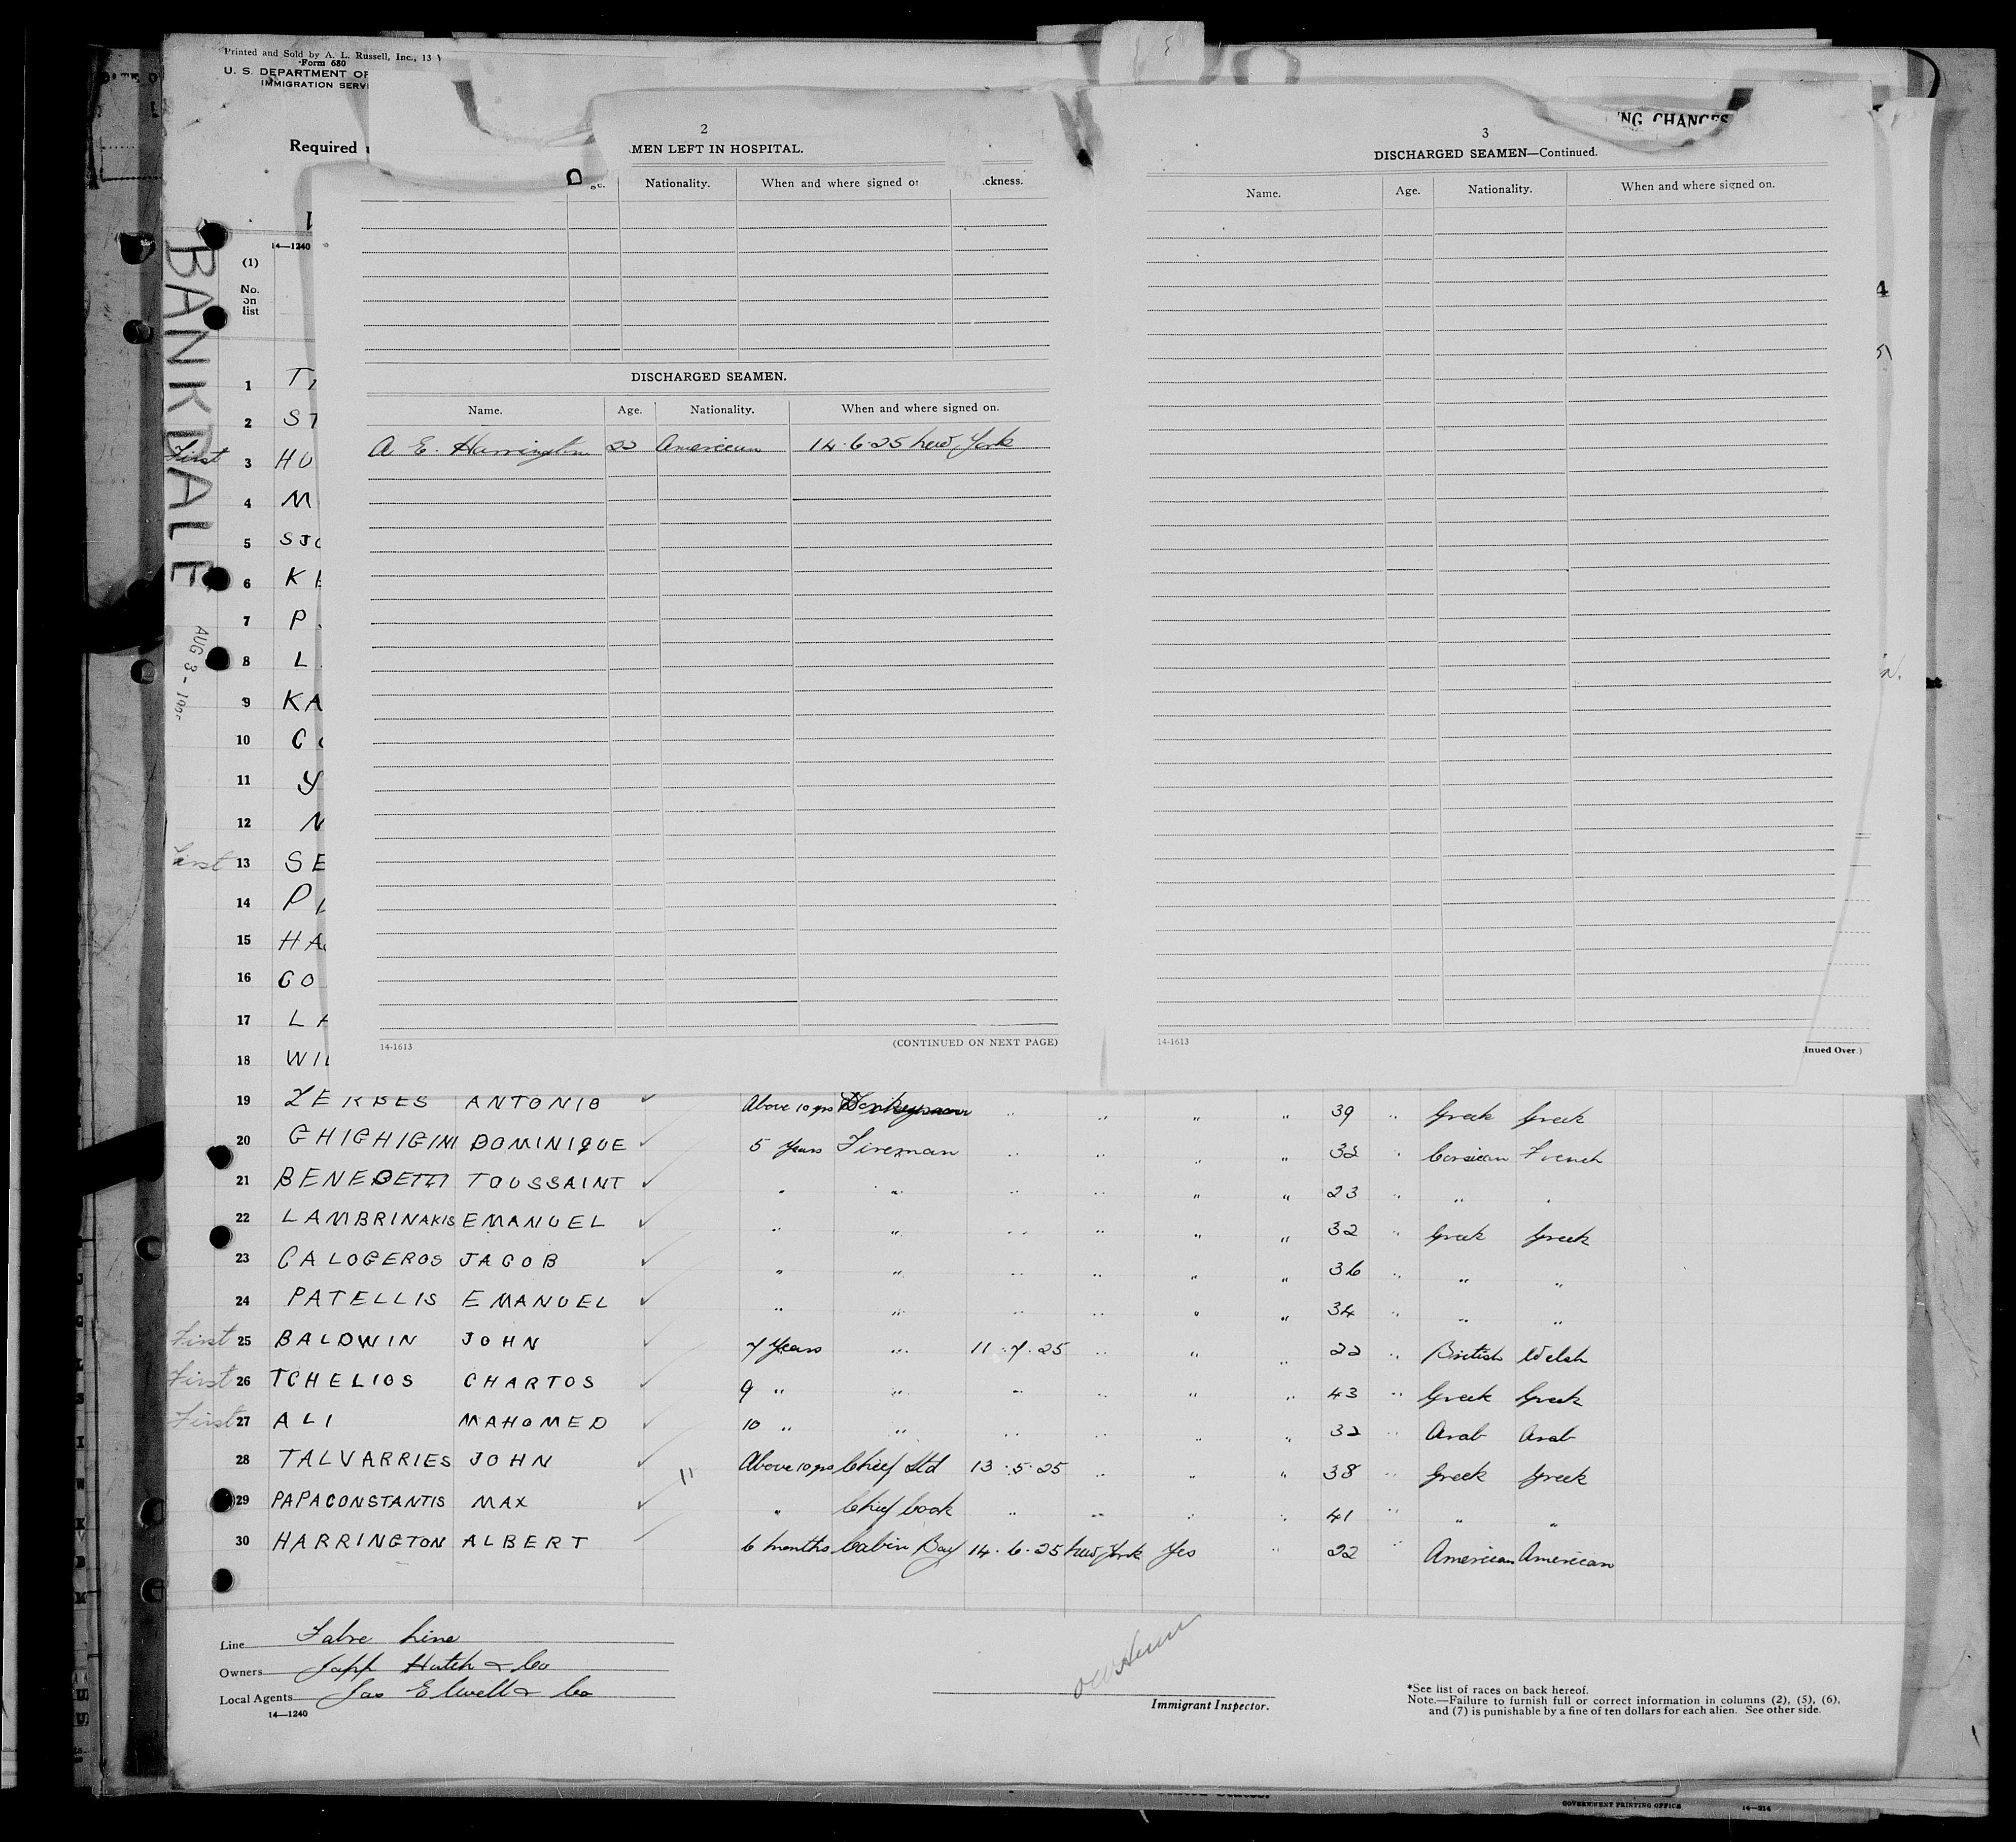 Printed and Sold by A. L. Russell, Inc., 13
Form 680
U. S. DEPARTMENT OF
IMMIGRATION SERVI
Required
14—1240
(1)
No.
on
list
BANKDALE
AUG 3 -
NG CHANGES
2
MEN LEFT IN HOSPITAL.
Nationality. When and where signed o ckness.
DISCHARGED SEAMEN.
Name. Age. Nationality. When and where signed on.
A E. Harrington 22 American 14.6.25 New York
14-1613 (CONTINUED ON NEXT PAGE)
3
DISCHARGED SEAMEN—Continued.
Name. Age. Nationality. When and where signed on.
14-1613
inued Over.)
1 T
2 ST
First 3 HU
4 M
5 SJO
6 KE
7 P
8 L
9 KA
10 CO
11 Y
12 N
First 13 SE
14 PL
15 HA
16 CO
17 LA
18 WIL
19 ZERBES ANTONIO ✓ Above 10 yrs Donkeyman " " " " 39 " Greek Greek
20 GHIGHIGINI DOMINIQUE ✓ 5 Years Fireman " " " " 32 " Corsican French
21 BENEDETTI TOUSSAINT ✓ " " " " " " 23 " " "
22 LAMBRINAKIS EMANUEL ✓ " " " " " " 32 " Greek Greek
23 CALOGEROS JACOB ✓ " " " " " " 36 " " "
24 PATELLIS EMANUEL ✓ " " " " " " 34 " " "
First 25 BALDWIN JOHN ✓ 7 Years " 11.7.25 " " " 22 " British Welsh
First 26 TCHELIOS CHARTOS ✓ 9 " " " " " " 43 " Greek Greek
First 27 ALI MAHOMED ✓ 10 " " " " " " 32 " Arab Arab
28 TALVARRIES JOHN ✓ 11 Above 10 yrs Chief Std 13.5.25 " " " 38 " Greek Greek
29 PAPACONSTANTIS MAX ✓ " Chief Cook " " " " 41 " " "
30 HARRINGTON ALBERT ✓ 6 months Cabin Boy 14.6.25 New York Yes " 22 " American American
Line Fabre Line
Owners Japp Hatch & Co
Local Agents Jas Elwell & Co
14—1240
Immigrant Inspector.
*See list of races on back hereof.
Note.—Failure to furnish full or correct information in columns (2), (5), (6),
and (7) is punishable by a fine of ten dollars for each alien. See other side.
GOVERNMENT PRINTING OFFICE 14—214